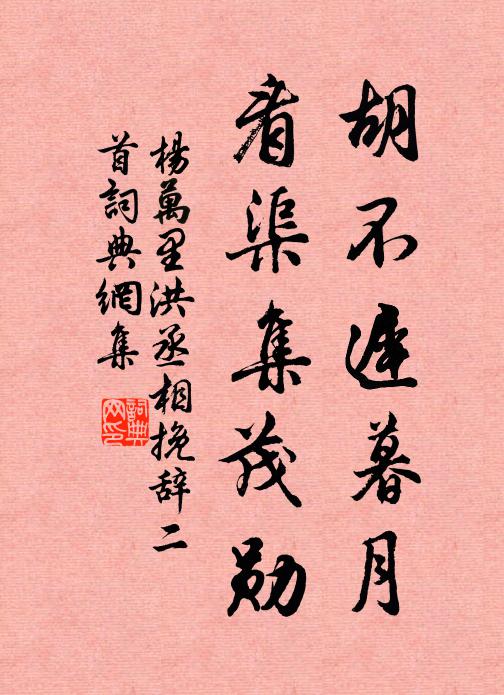 胡不遲暮月
看渠集茂勛
楊萬里洪丞相挽辞二
首詞典網集
詞典
网印